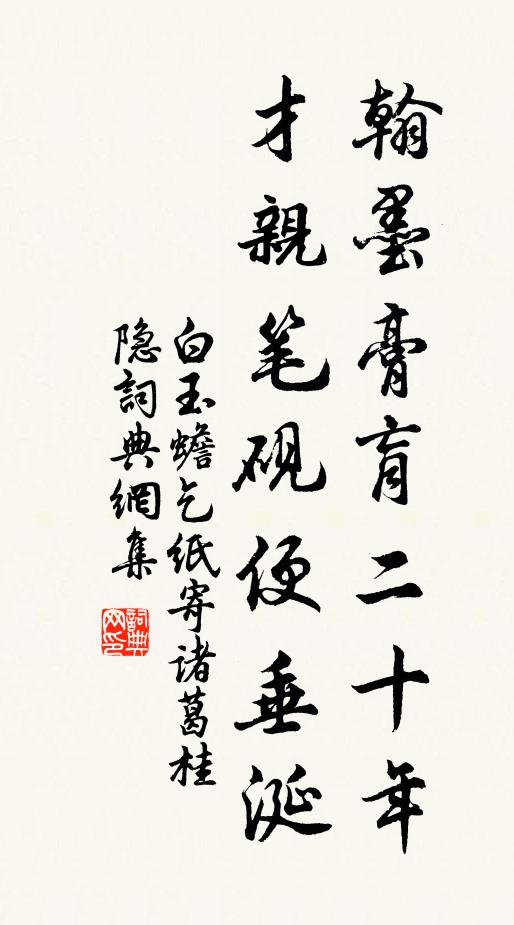 翰墨膏肓二十年
才親笔硯便垂涎
白玉蟾乞紙寄诸葛桂
隐詞典網集
詞典網印